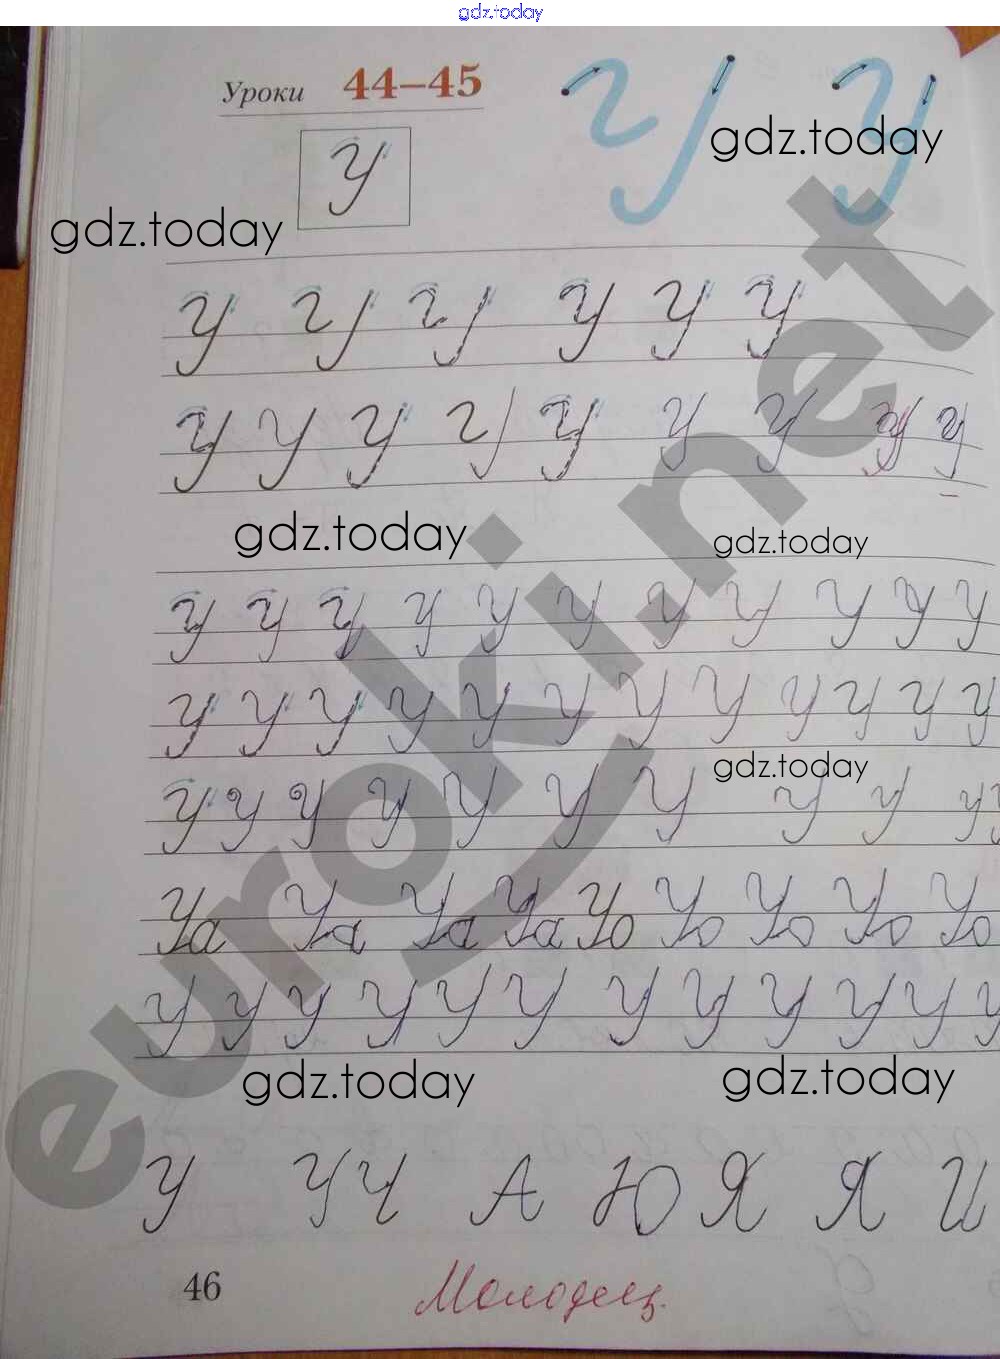 gdz.today
Уроки 44–45
У У
gdz.today
У
gdz.today
У У У У У У
У У У У У У У У У
gdz.today
gdz.today
У У У У У У У У У У У
У У У У У У У У У У У У
gdz.today
У У У У У У У У У У
Уа Уа Уа Уа Уо Уо Уо Уо Уо
У У У У У У У У У У У У
gdz.today
gdz.today
У У Ч А Ю Я Я И
46
Молодец.
euroki.net